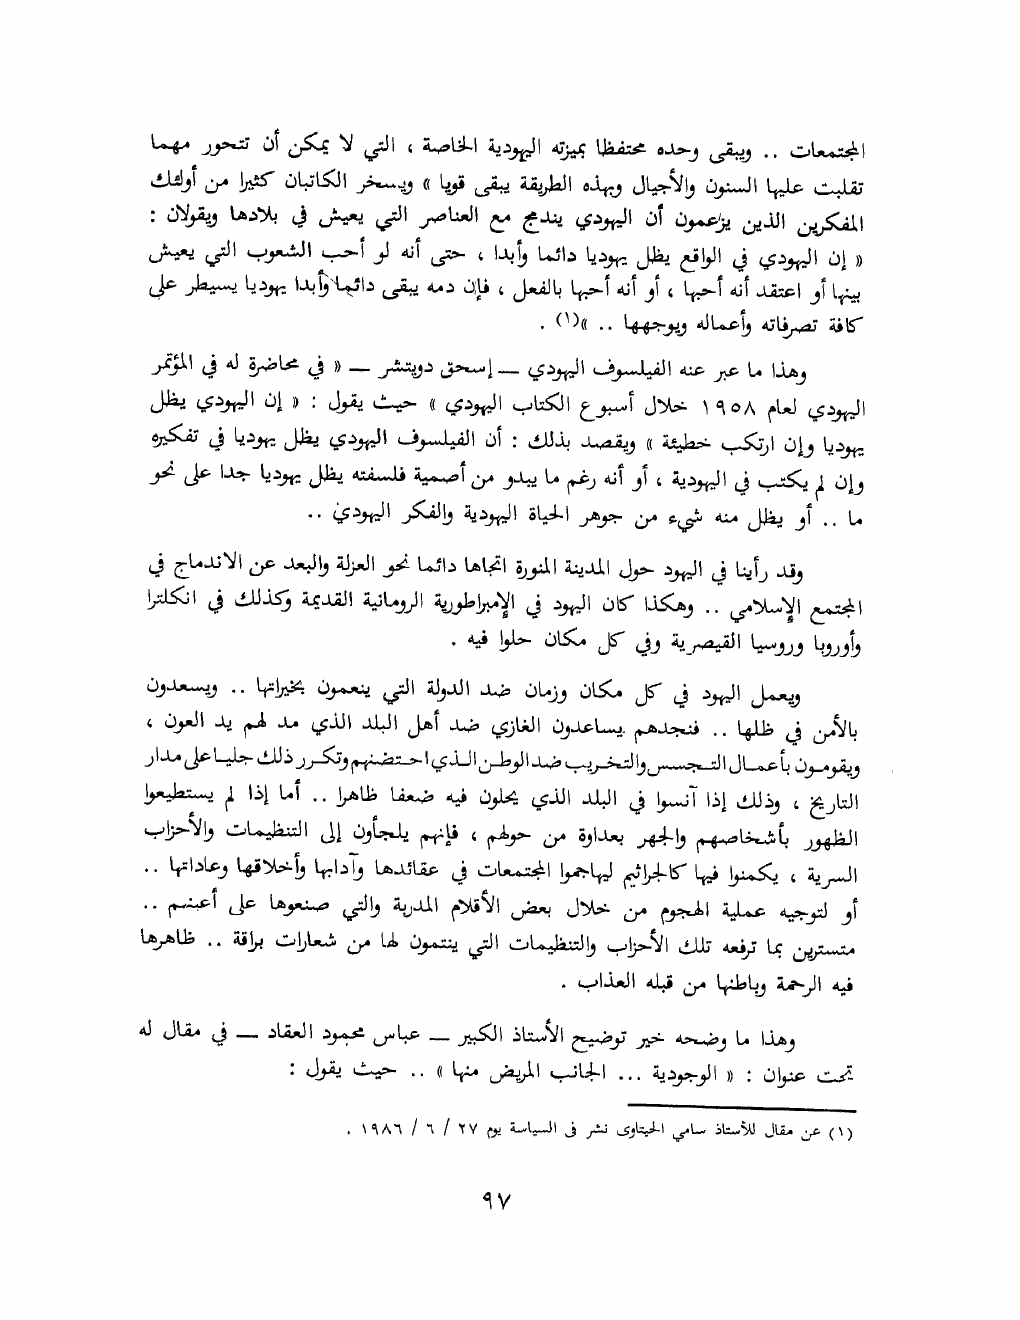 المجتمعات .. ويبقى وحده محتفظا بميزته اليهودية الخاصة ، التي لا يمكن أن تتحور مهما
تقلبت عليها السنون والأجيال وبهذه الطريقة يبقى قويا » ويسخر الكاتبان كثيرا من أولئك
المفكرين الذين يزعمون أن اليهودي يندمج مع العناصر التي يعيش في بلادها ويقولان :
« إن اليهودي في الواقع يظل يهوديا دائما وأبدا ، حتى أنه لو أحب الشعوب التي يعيش
بينها أو اعتقد أنه أحبها ، أو أنه أحبها بالفعل ، فإن دمه يبقى دائما وأبدا يهوديا يسيطر على
كافة تصرفاته وأعماله ويوجهها .. »(١) .
وهذا ما عبر عنه الفيلسوف اليهودي ــ إسحق دويتشر ــ « في محاضرة له في المؤتمر
اليهودي لعام ١٩٥٨ خلال أسبوع الكتاب اليهودي » حيث يقول : « إن اليهودي يظل
يهوديا وإن ارتكب خطيئة » ويقصد بذلك : أن الفيلسوف اليهودي يظل يهوديا في تفكيره
وإن لم يكتب في اليهودية ، أو أنه رغم ما يبدو من أصمية فلسفته يظل يهوديا جدا على نحو
ما .. أو يظل منه شيء من جوهر الحياة اليهودية والفكر اليهودي ..
وقد رأينا في اليهود حول المدينة المنورة اتجاها دائما نحو العزلة والبعد عن الاندماج في
المجتمع الإسلامي .. وهكذا كان اليهود في الإمبراطورية الرومانية القديمة وكذلك في انكلترا
وأوروبا وروسيا القيصرية وفي كل مكان حلوا فيه .
ويعمل اليهود في كل مكان وزمان ضد الدولة التي ينعمون بخيراتها .. ويسعدون
بالأمن في ظلها .. فنجدهم يساعدون الغازي ضد أهل البلد الذي مد لهم يد العون ،
ويقومون بأعمال التجسس والتخريب ضد الوطن الذي احتضنهم وتكرر ذلك جليا على مدار
التاريخ ، وذلك إذا آنسوا في البلد الذي يحلون فيه ضعفا ظاهرا .. أما إذا لم يستطيعوا
الظهور بأشخاصهم والجهر بعداوة من حولهم ، فإنهم يلجأون إلى التنظيمات والأحزاب
السرية ، يكمنوا فيها كالجراثيم ليهاجموا المجتمعات في عقائدها وآدابها وأخلاقها وعاداتها ..
أو لتوجيه عملية الهجوم من خلال بعض الأقلام المدربة والتي صنعوها على أعينهم ..
متسترين بما ترفعه تلك الأحزاب والتنظيمات التي ينتمون لها من شعارات براقة .. ظاهرها
فيه الرحمة وباطنها من قبله العذاب .
وهذا ما وضحه خير توضيح الأستاذ الكبير ــ عباس محمود العقاد ــ في مقال له
تحت عنوان : « الوجودية ... الجانب المريض منها » .. حيث يقول :
(١) عن مقال للأستاذ سامي الحيتاوى نشر فى السياسة يوم ٢٧ / ٦ / ١٩٨٦ .
٩٧